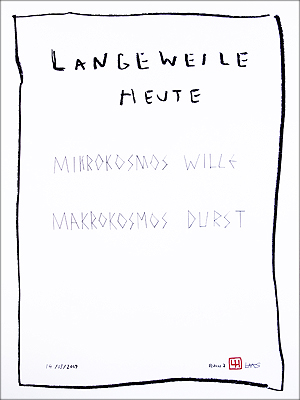 LANGEWEILE
HEUTE
MIKROKOSMOS WILLE
MAKROKOSMOS DURST